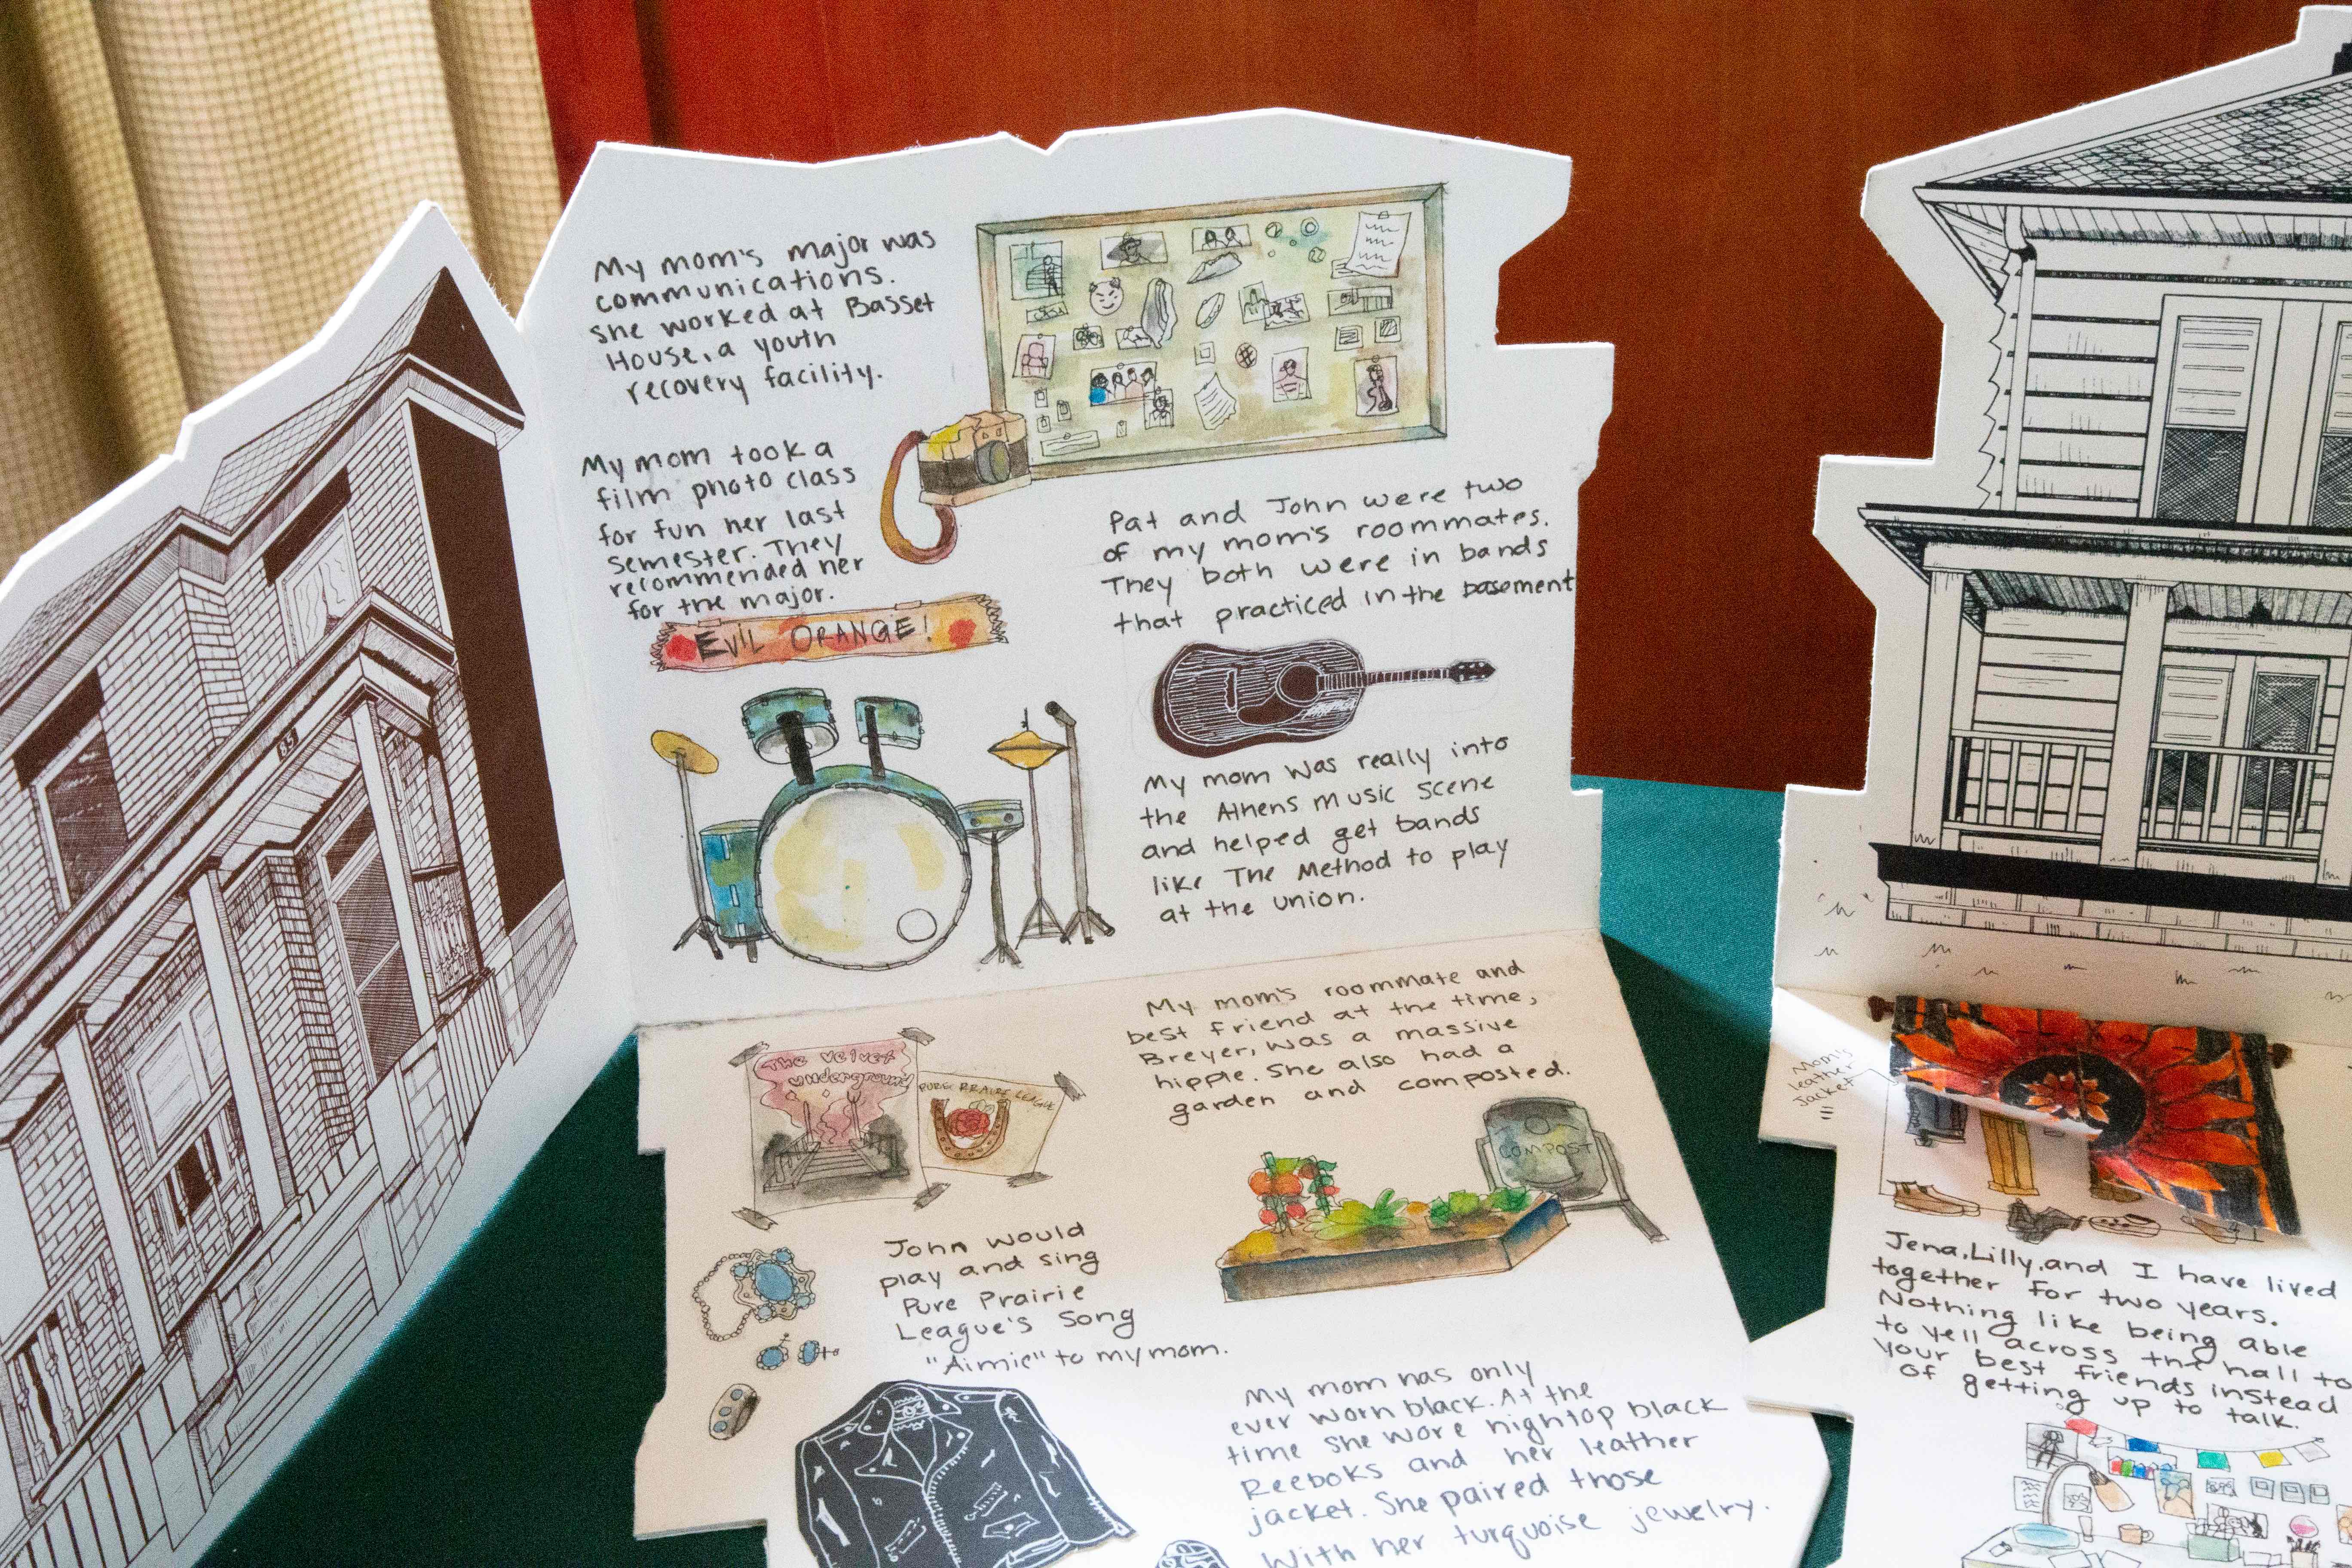 My mom's major was
communications.
she worked at Basset
House, a youth
recovery facility.
My mom took a
film photo class
for fun her last
semester. They
recommended her
for the major.
EVIL ORANGE!
Pat and John were two
of my mom's roommates.
They both were in bands
that practiced in the basement
My mom was really into
the Athens music scene
and helped get bands
like The Method to play
at the union.
My mom's roommate and
best friend at the time,
Breyer, was a massive
hippie. She also had a
garden and composted.
The Velvet
Underground
PURE PRAIRIE LEAGUE
COMPOST
John would
play and sing
Pure Prairie
League's Song
"Aimie" to my mom.
My mom has only
ever worn black. At the
time she wore hightop black
Reeboks and her leather
jacket. She paired those
with her turquoise jewelry.
Mom's
leather
Jacket
Jena, Lilly, and I have lived
together for two years.
Nothing like being able
to yell across the hall to
your best friends instead
of getting up to talk.